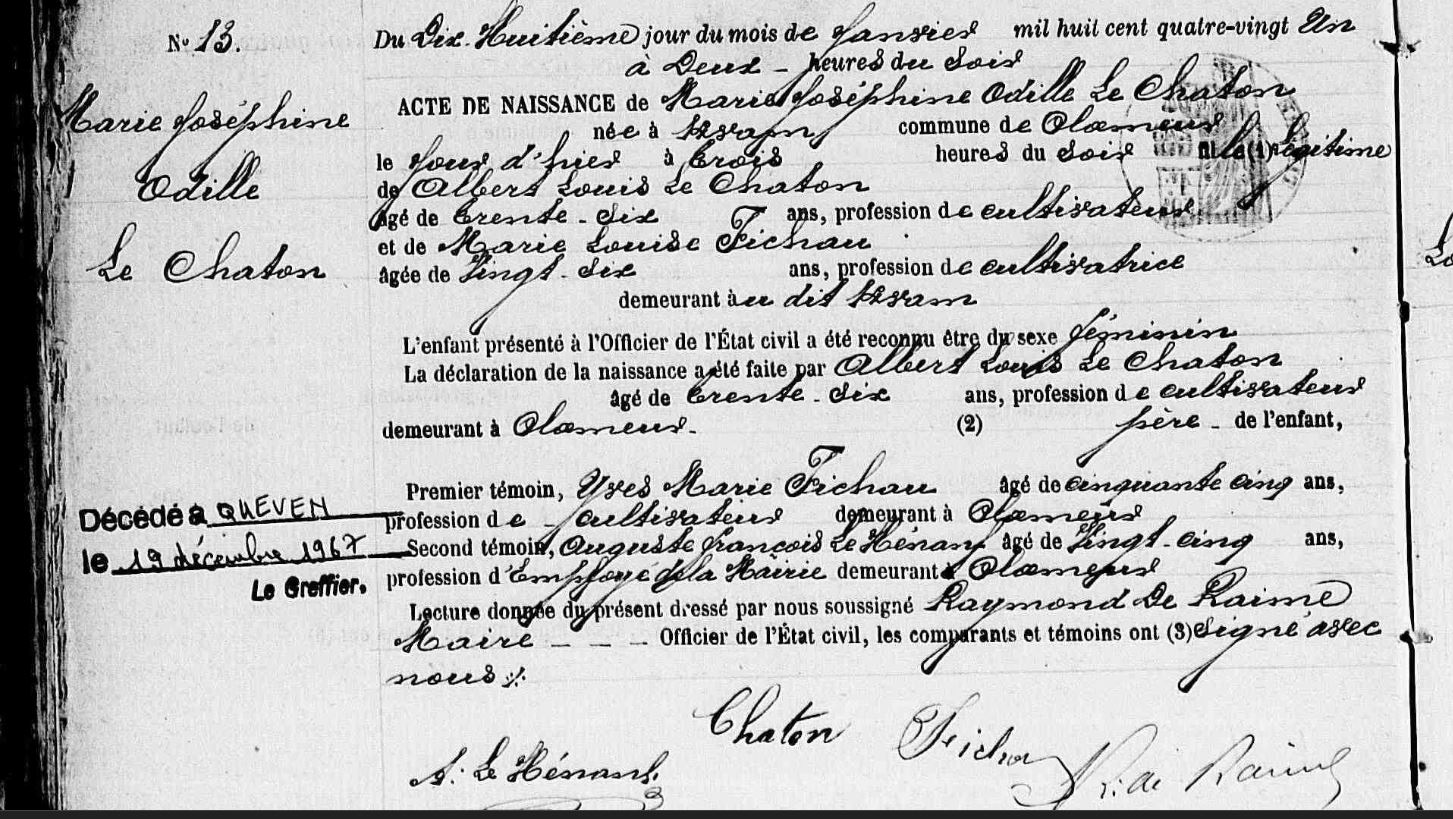 Nº 13.
Du Dix-Huitième jour du mois de Janvier mil huit cent quatre-vingt Un
à Deux - heures du Soir
Marie Joséphine
Odille
Le Chaton
ACTE DE NAISSANCE de Marie Joséphine Odille Le Chaton
née à commune de Ploemeur
le Jour d'hier à Trois heures du Soir fille (1) légitime
de Albert Louis Le Chaton
âgé de trente-six ans, profession de cultivateur
et de Marie Louise Fichau
âgée de Vingt-six ans, profession de cultivatrice
demeurant au dit
L'enfant présenté à l'Officier de l'État civil a été reconnu être du sexe féminin
La déclaration de la naissance a été faite par Albert Louis Le Chaton
âgé de trente-six ans, profession de cultivateur
demeurant à Ploemeur - (2) père - de l'enfant,
Premier témoin, Yves Marie Fichau âgé de cinquante cinq ans,
profession de - cultivateur demeurant à Ploemeur
Second témoin, Auguste François Le Hénanf âgé de Vingt-cinq ans,
profession d'Employé de la Mairie demeurant à Ploemeur
Lecture donnée du présent dressé par nous soussigné Raymond De Raime
Maire - - - Officier de l'État civil, les comparants et témoins ont (3) Signé avec
nous ;.
Décédé à QUEVEN
le 19 décembre 1967
Le Greffier.
Chaton
A. Le Hénanf